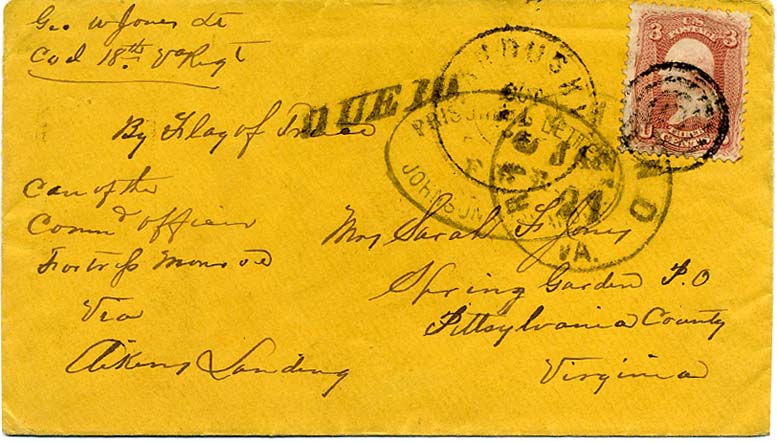 Geo. W Jones Lt
Co d 18th Va Regt
DUE 10
By Flag of Truce
Care of the
Commd officer
Fortress Monroe
Via
Aikens Landing
Mrs Sarah F Jones
Spring Garden P.O
Pittsylvania County
Virginia
SANDUSKY
OCT
PRISONER'S LETTER
JOHNSON'S
VA.
3 U.S. POSTAGE 3
THREE CENTS